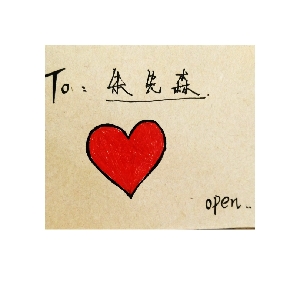 To: 朱先森.
open.